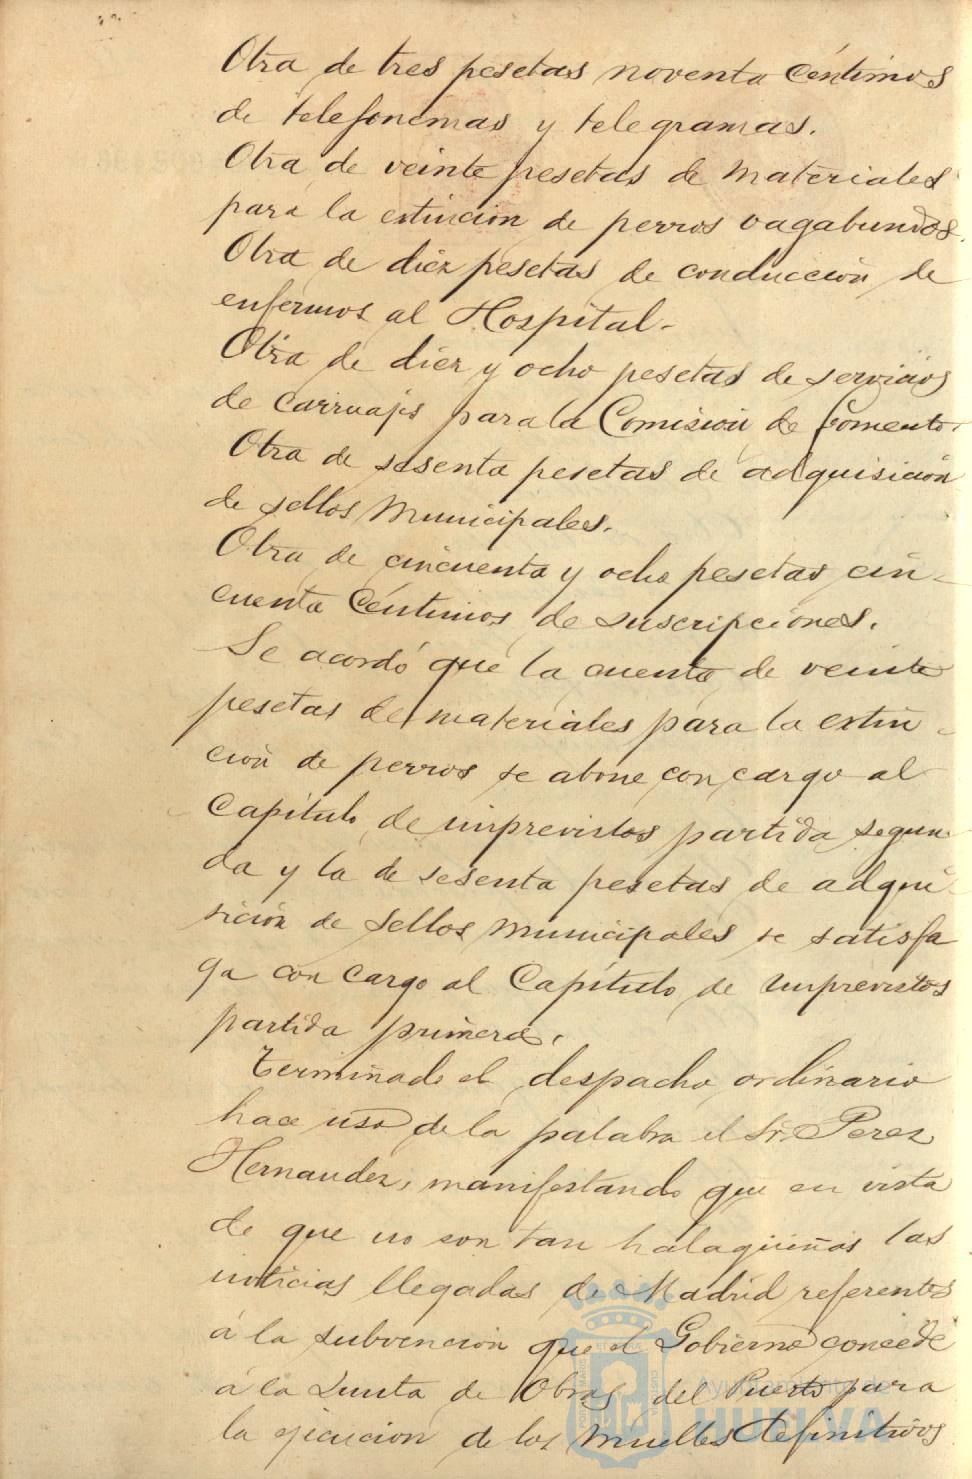 Otra de tres pesetas noventa céntimos
de telefonemas y telegramas.
Otra de veinte pesetas de materiales
para la estincion de perros vagabundos.
Otra de diez pesetas de conducción de
enfermos al Hospital.
Otra de diez y ocho pesetas de servicios
de carruajes para la Comisión de Fomento.
Otra de sesenta pesetas de adquisición
de sellos Municipales.
Otra de cincuenta y ocho pesetas cin-
cuenta Céntimos de suscripciones.
Se acordó que la cuenta de veinte
pesetas de materiales para la estin-
ción de perros se abone con cargo al
Capitulo de imprevistos partida segun-
da y la de sesenta pesetas de adqui-
sición de Sellos municipales se satisfa
ga con cargo al Capítulo de imprevistos
partida primera.
Terminado el despacho ordinario
hace uso de la palabra el Sr. Perez
Hernandez, manifestando que en vista
de que no son tan halagüeñas las
noticias llegadas de Madrid referentes
á la subvencion que el Gobierno concede
á la Junta de Obras del Puerto para
la ejecucion de los Muelles definitivos
Ayuntamiento de
HUELVA